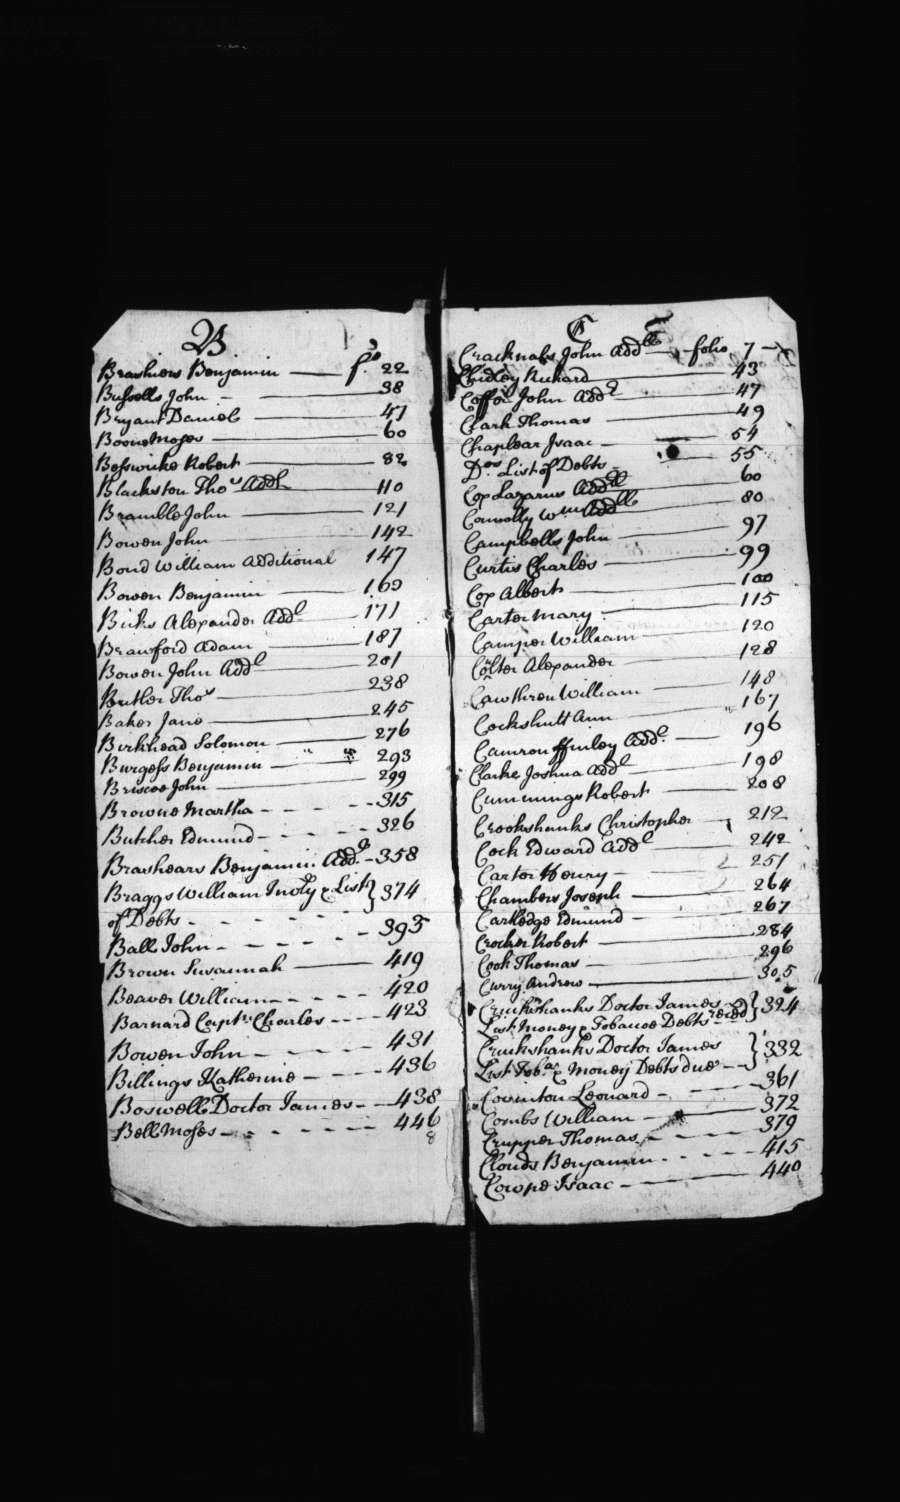 B
Brashiers Benjamin — fo. 22
Bussells John — 38
Bryant Daniel — 47
Boone Moses — 60
Besswicke Robert — 82
Blackston Thos Addl 110
Bramble John — 121
Bowen John — 142
Bond William Additional 147
Bowen Benjamin — 169
Bicks Alexander Addl — 171
Brawford Adam — 187
Bowen John Addl — 201
Butler Thos — 238
Baker Jane — 245
Birkhead Solomon — 276
Burgess Benjamin — 293
Briscoe John — 299
Browne Martha - - - - 315
Butcher Edmund - - - - 326
Brashears Benjamin Addl - 358
Braggs William Invty & List } 374
of Debts - - - -
Ball John - - - - - 393
Brown Susannah — 419
Beaver William - - - - 420
Barnard Capt. Charles - - - 423
Bowen John - - - - 431
Billings Katherine - - - 436
Boswell Doctor James - - 438
Bell Moses - - - - - 446
8
C
Cracknabs John Addl — folio 7
Chidley Richard — 43
Coffor John Addl — 47
Clark Thomas — 49
Chaplear Isaac — 54
Dos List of Debts — 55
Cox Lazarus Addl — 60
Connolly Wm Addl — 80
Campbells John — 97
Curtis Charles — 99
Cox Albert — 100
Carter Mary — 115
Camper William — 120
Colter Alexander — 128
Cawthren William — 148
Cockshutt Ann — 167
Camron ffinley Addl — 196
Clarke Joshua Addl — 198
Cummings Robert — 208
Crookshanks Christopher — 212
Cock Edward Addl — 242
Carter Henry — 251
Chambers Joseph — 264
Cartledge Edmund — 267
Crocker Robert — 284
Cook Thomas — 296
Curry Andrew — 305
Cruikshanks Doctor James } 324
List Money & Tobacoe Debts reced
Cruikshanks Doctor James } 332
List Tobac & Money Debts due
Covinton Leonard - - - - 361
Combs William — 372
Crupper Thomas - - - - 379
Clouds Benjamin - - - - 415
Cowpe Isaac - - - - 440